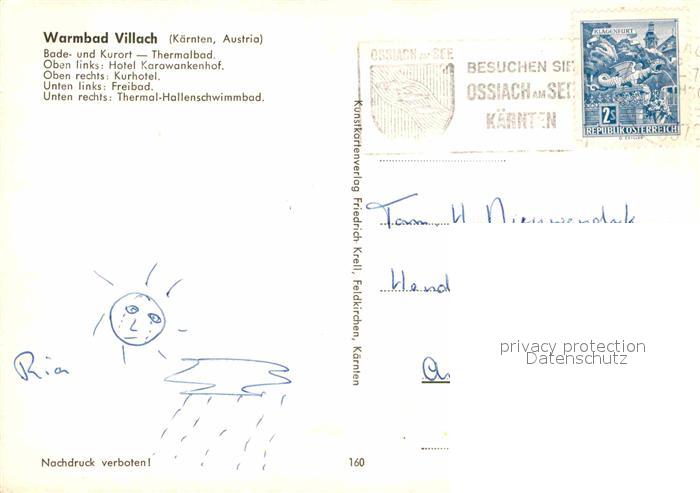 Warmbad Villach (Kärnten, Austria)
Bade- und Kurort — Thermalbad.
Oben links: Hotel Karawankenhof.
Oben rechts: Kurhotel.
Unten links: Freibad.
Unten rechts: Thermal-Hallenschwimmbad.
OSSIACH AM SEE
BESUCHEN SIE
OSSIACH AM SEE
KÄRNTEN
KLAGENFURT
2S
REPUBLIK ÖSTERREICH
Kunstkartenverlag Friedrich Krell, Feldkirchen, Kärnten
Ria
privacy protection
Datenschutz
Nachdruck verboten!
160